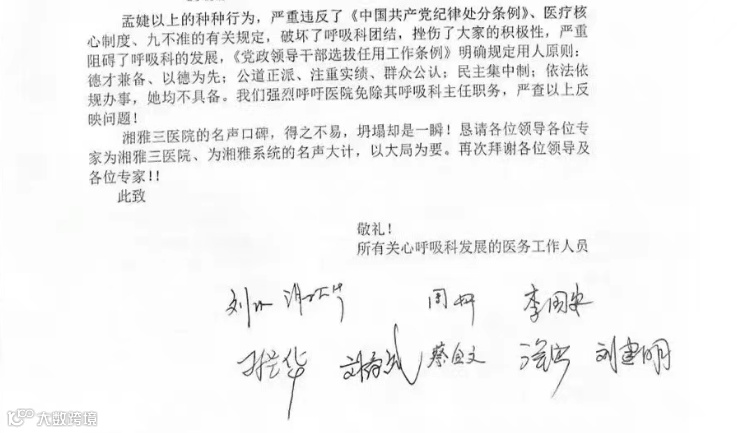 孟婕以上的种种行为，严重违反了《中国共产党纪律处分条例》、医疗核
心制度、九不准的有关规定，破坏了呼吸科团结，挫伤了大家的积极性，严重
阻碍了呼吸科的发展，《党政领导干部选拔任用工作条例》明确规定用人原则：
德才兼备、以德为先；公道正派、注重实绩、群众公认；民主集中制；依法依
规办事，她均不具备。我们强烈呼吁医院免除其呼吸科主任职务，严查以上反
映问题！
湘雅三医院的名声口碑，得之不易，坍塌却是一瞬！恳请各位领导各位专
家为湘雅三医院、为湘雅系统的名声大计，以大局为要。再次拜谢各位领导及
各位专家！！
此致
敬礼！
所有关心呼吸科发展的医务工作人员
李国安
刘建明
大数跨境